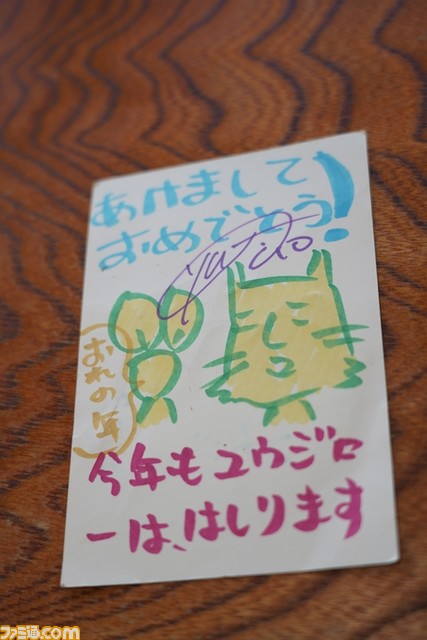 あけまして
おめでとう!
おれの年
今年もユウジロ
ーは、はしります
ファミ通.com